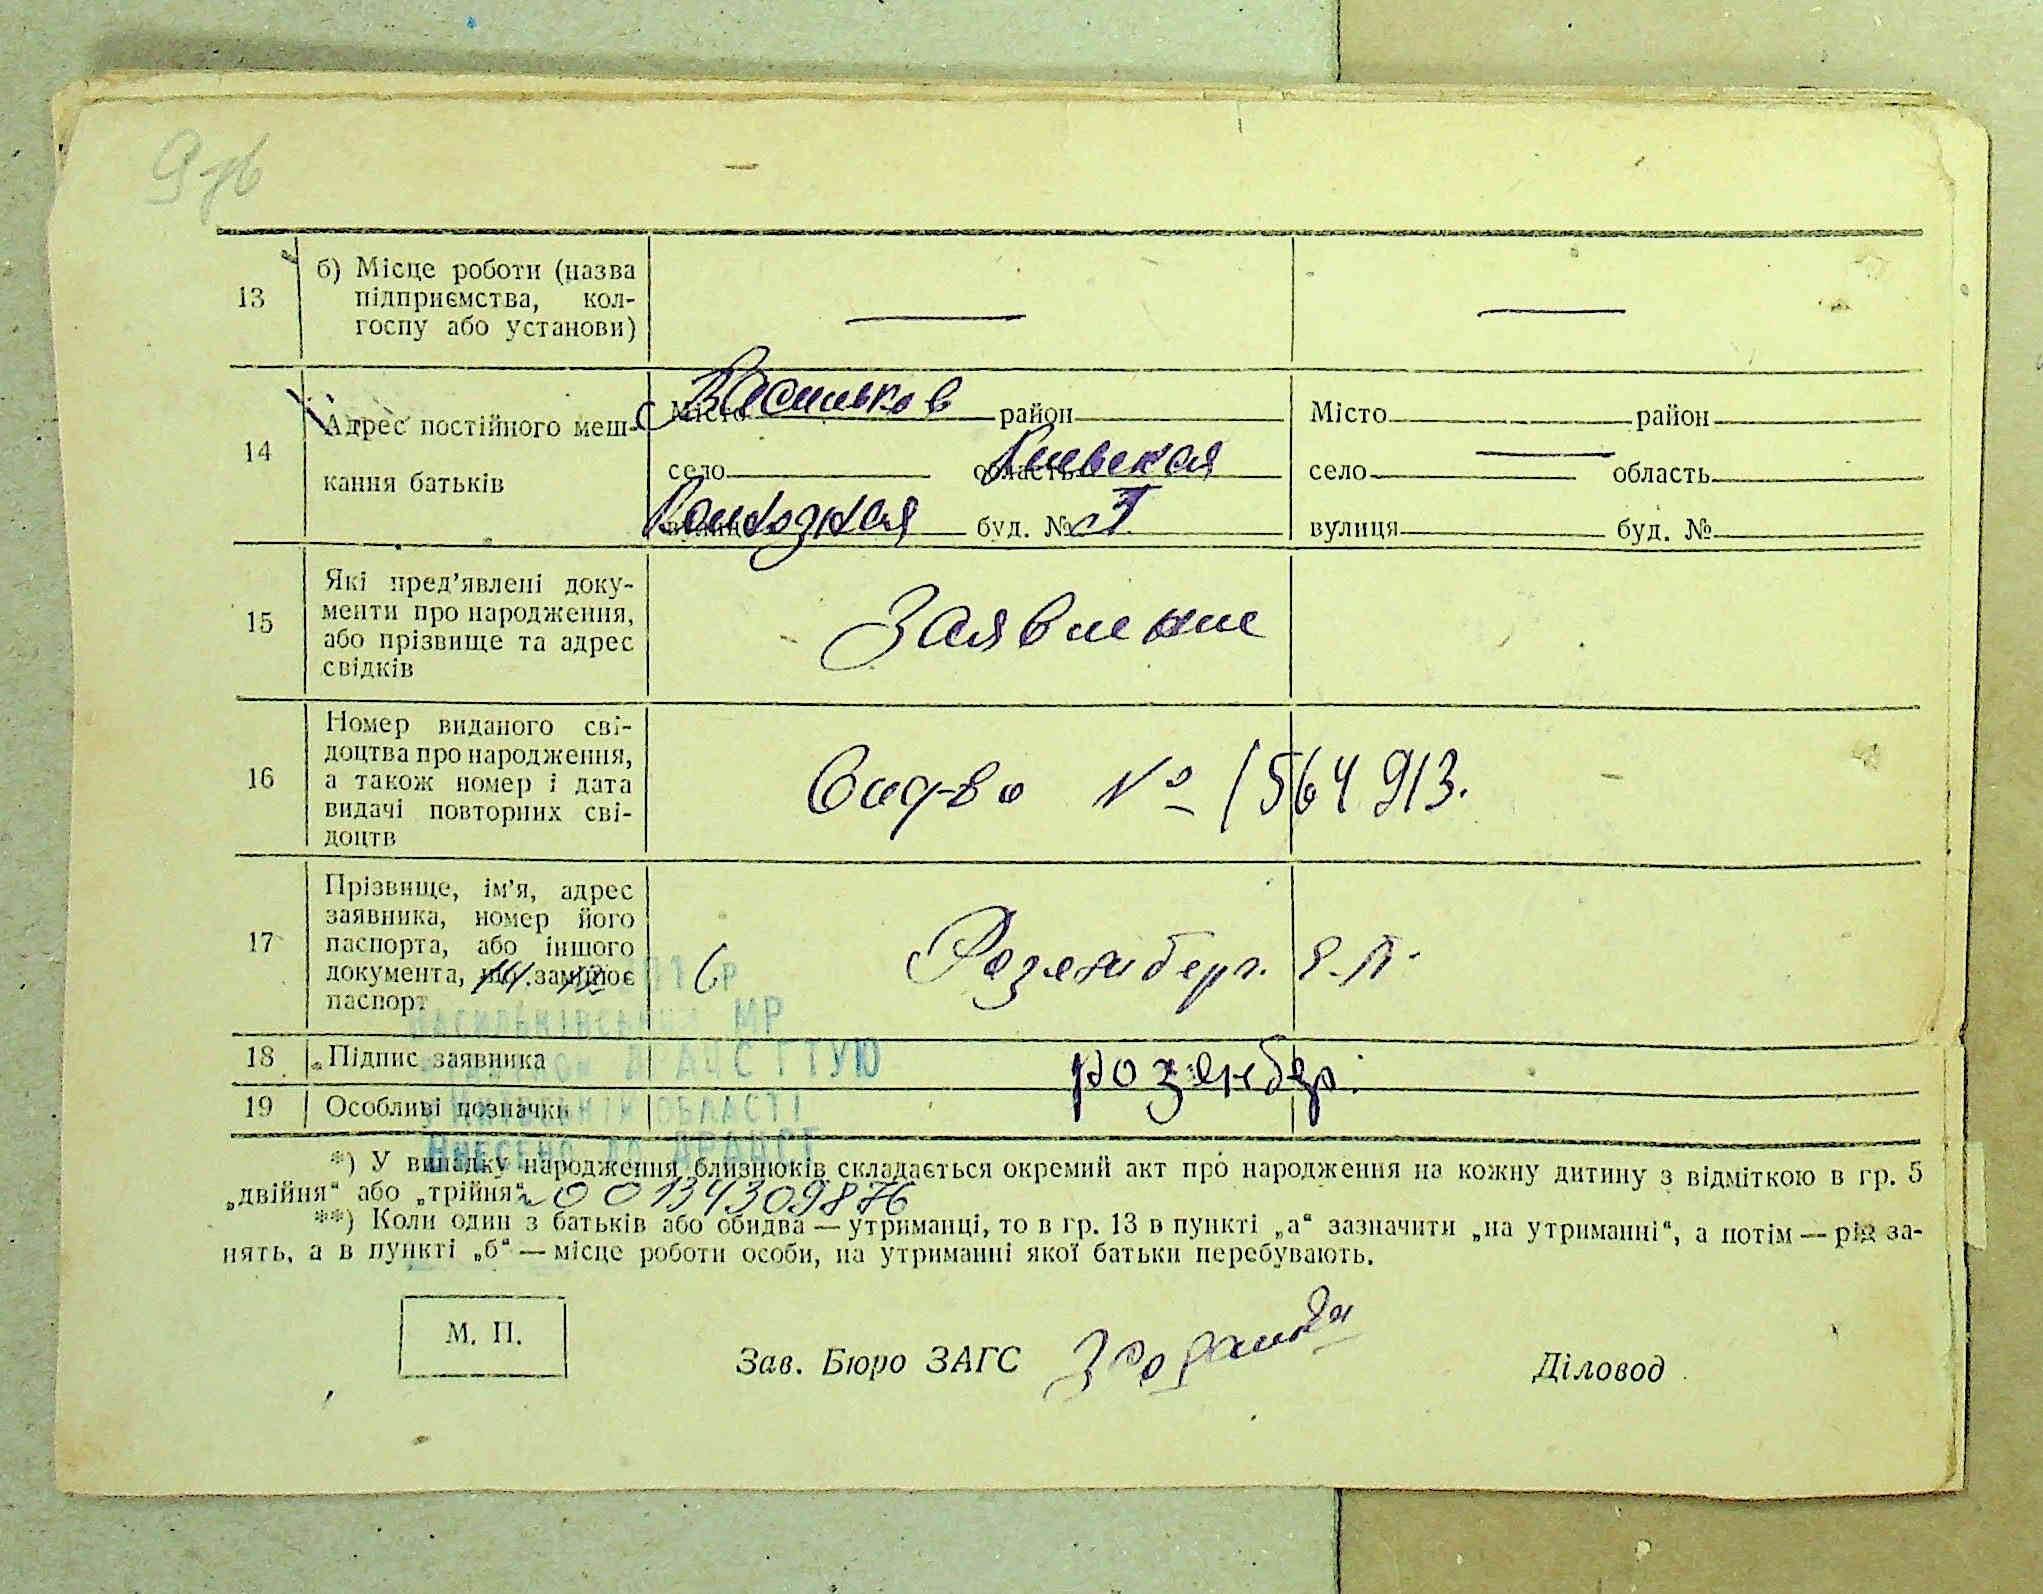 13
б) Місце роботи (назва
підприємства, кол-
госпу або установи)
14
Адрес постійного меш-
кання батьків
Місто Васильков район
село область Киевская
вулиця буд. №
Місто район
село область
вулиця буд. №
15
Які пред’явлені доку-
менти про народження,
або прізвище та адрес
свідків
Заявление
16
Номер виданого сві-
доцтва про народження,
а також номер і дата
видачі повторних сві-
доцтв
Свид-во № 1564913.
17
Прізвище, ім’я, адрес
заявника, номер його
паспорта, або іншого
документа, що замінює
паспорт
Розенберг.
18
Підпис заявника
розенбер.
19
Особливі позначки
ВАСИЛЬКІВСЬКИЙ МР
ДРАЦС ГТУЮ
ОБЛАСТІ
ВНЕСЕНО ДО ДРАЦСГ
*) У випадку народження близнюків складається окремий акт про народження на кожну дитину з відміткою в гр. 5
„двійня“ або „трійня“. 00134309876
**) Коли один з батьків або обидва — утриманці, то в гр. 13 в пункті „а“ зазначити „на утриманні“, а потім — рід за-
нять, а в пункті „б“ — місце роботи особи, на утриманні якої батьки перебувають.
М. П.
Зав. Бюро ЗАГС
Діловод